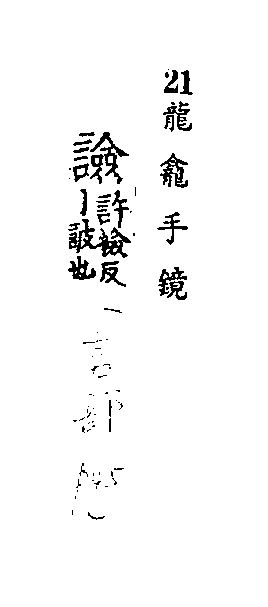 21龍龕手鏡
譣
許檢反
丨詖也
言部